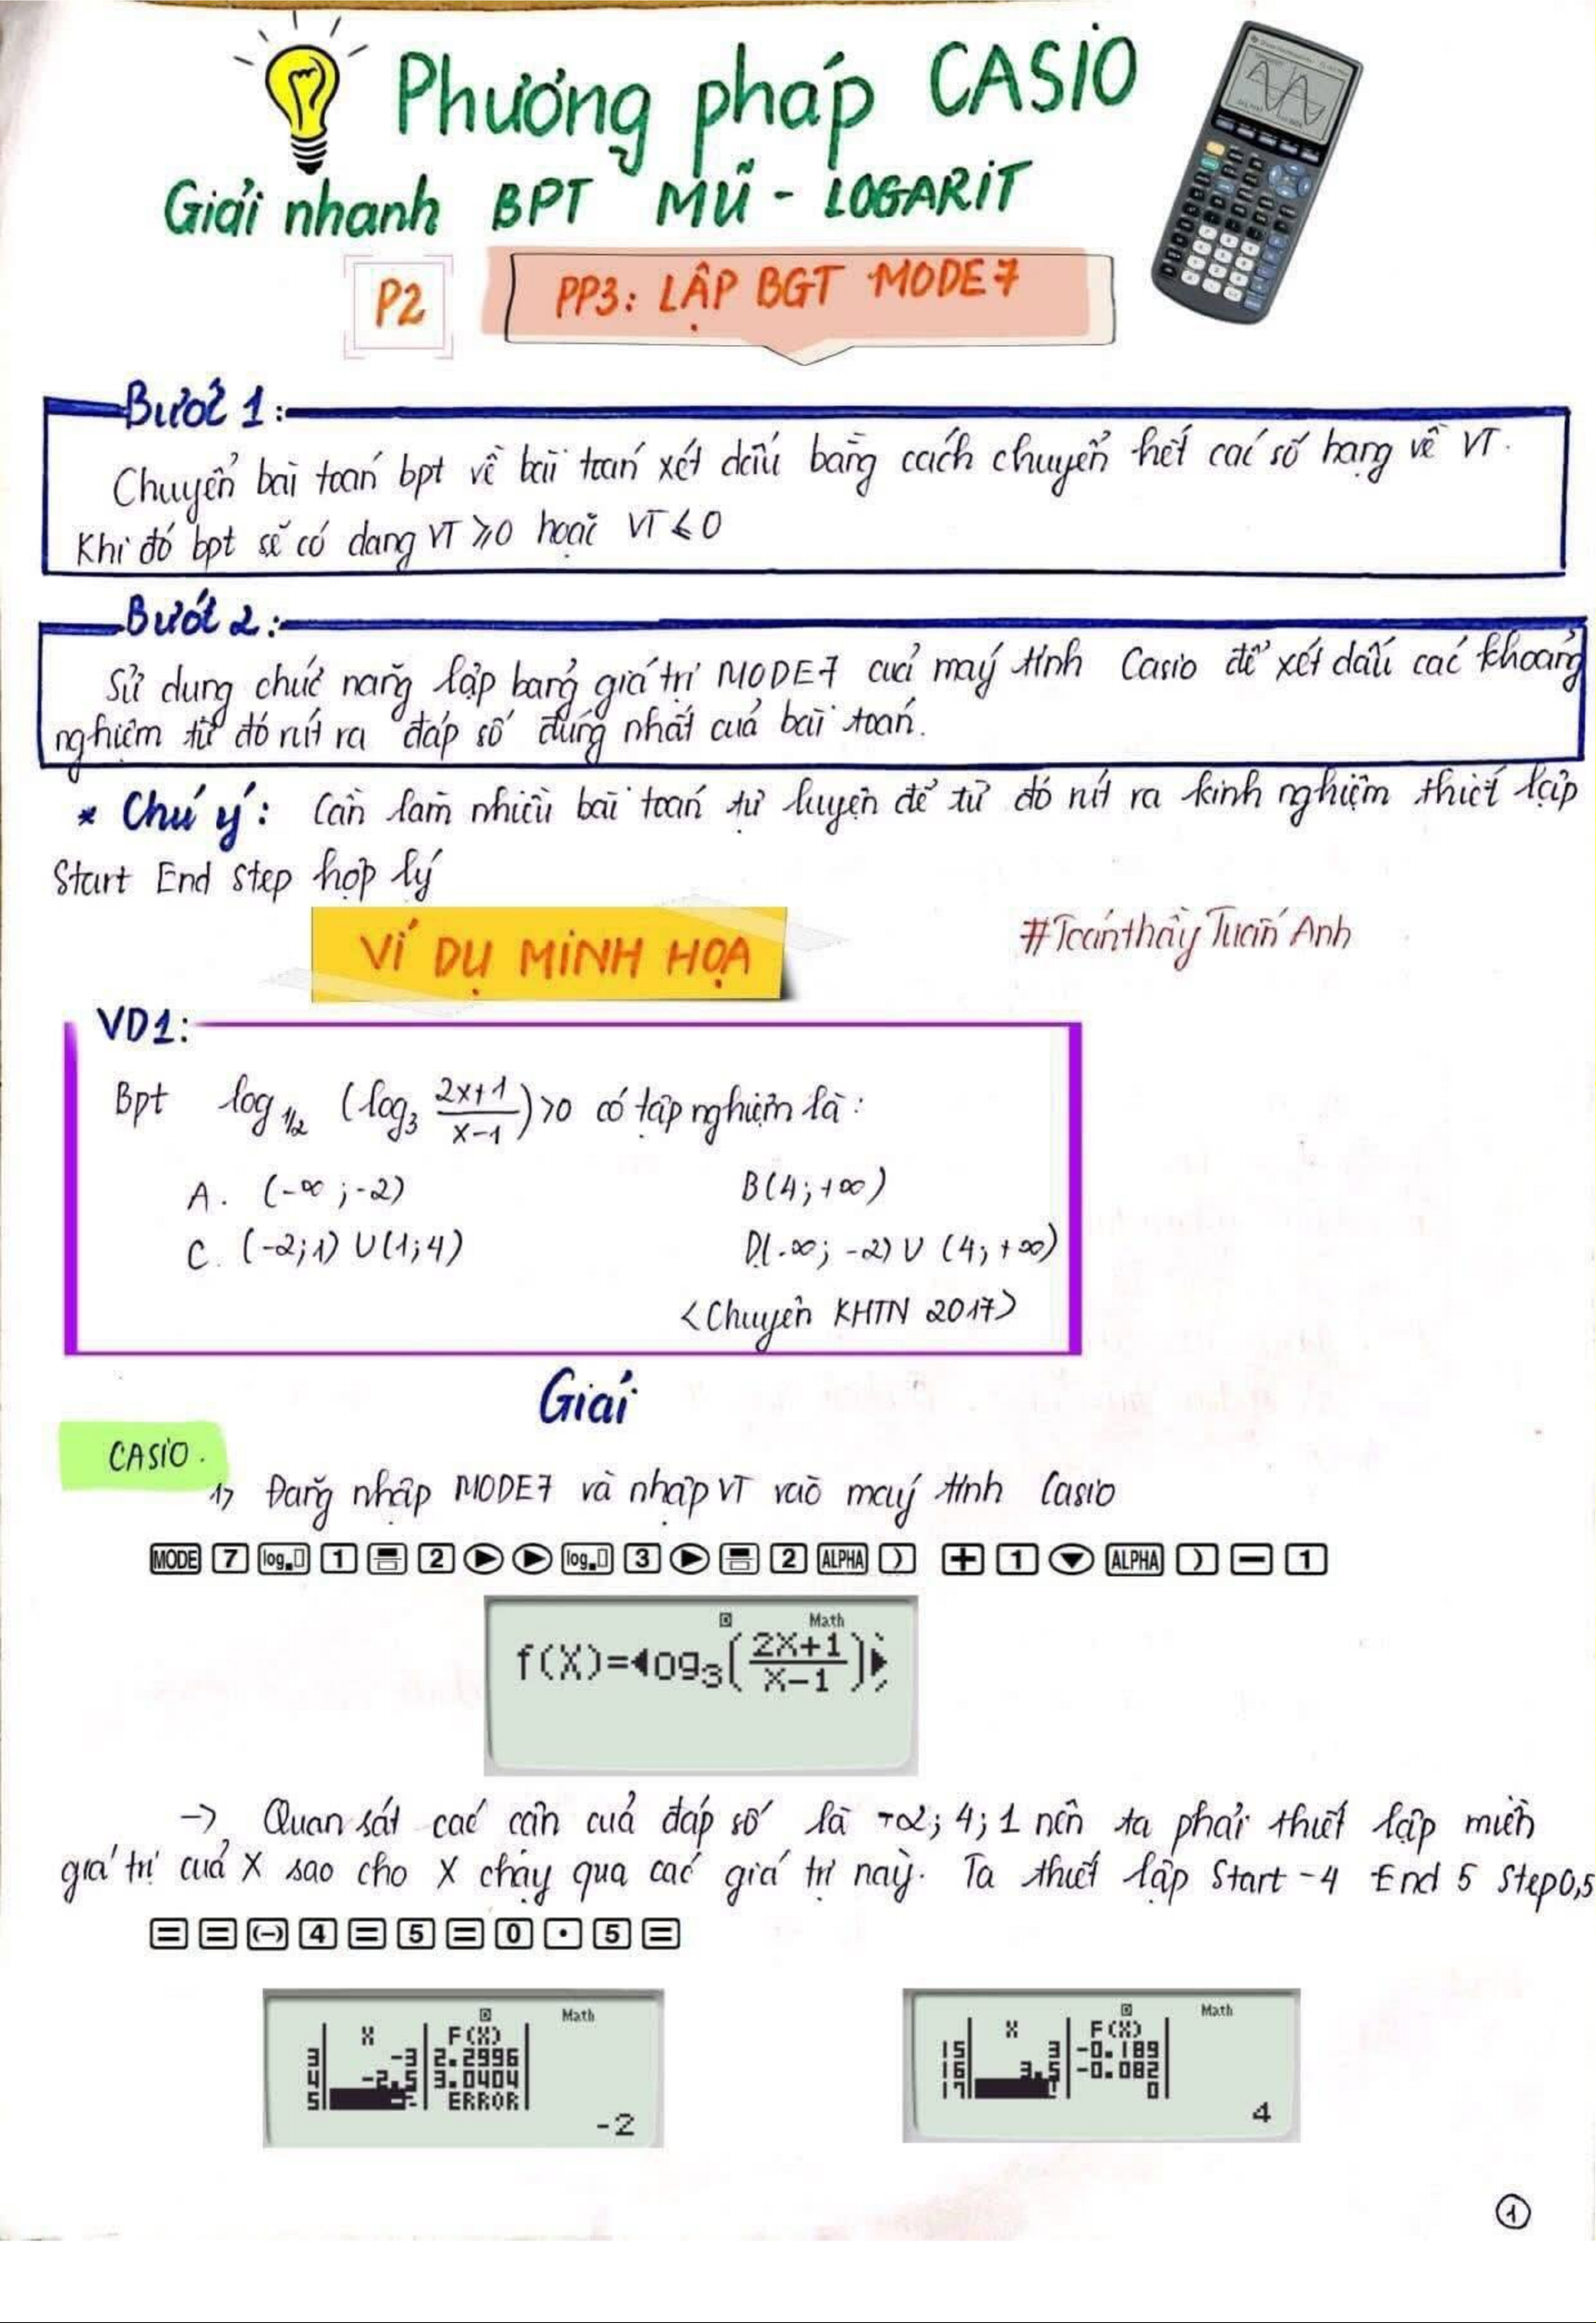 Phương pháp CASIO
Giải nhanh BPT MŨ - LOGARIT
P2
PP3: LẬP BGT MODE7
Bước 1:
Chuyển bài toán bpt về bài toán xét dấu bằng cách chuyển hết các số hạng về VT.
Khi đó bpt sẽ có dạng VT ⩾0 hoặc VT ⩽0
Bước 2:
Sử dụng chức năng lập bảng giá trị MODE7 của máy tính Casio để xét dấu các khoảng
nghiệm từ đó rút ra đáp số đúng nhất của bài toán.
* Chú ý: Cần làm nhiều bài toán tự luyện để từ đó rút ra kinh nghiệm thiết lập
Start End step hợp lý
VÍ DỤ MINH HỌA
#Toánthầy Tuấn Anh
VD1:
Bpt log_{1/2} (log_3 \frac{2x+1}{x-1})>0 có tập nghiệm là:
A. (-∞;-2) B(4;+∞)
C. (-2;1) U(1;4) D(-∞; -2) U (4;+∞)
<Chuyên KHTN 2017>
Giải
CASIO.
1> Đăng nhập MODE7 và nhập VT vào máy tính Casio
MODE 7 log 1 2 ▶ ▶ log 3 ▶ 2 ALPHA ) + 1 ▼ ALPHA ) − 1
Math
f(X)=◀og_3(\frac{2X+1}{X-1})▶
-> Quan sát các cận của đáp số là -2; 4; 1 nên ta phải thiết lập miền
giá trị của X sao cho X chạy qua các giá trị này. Ta thiết lập Start -4 End 5 Step0,5
= = (-) 4 = 5 = 0 . 5 =
Math
X F(X)
3 -3 2.2996
4 -2.5 3.0404
5 ERROR
-2
Math
X F(X)
15 3 -0.189
16 3.5 -0.082
17 0
4
1